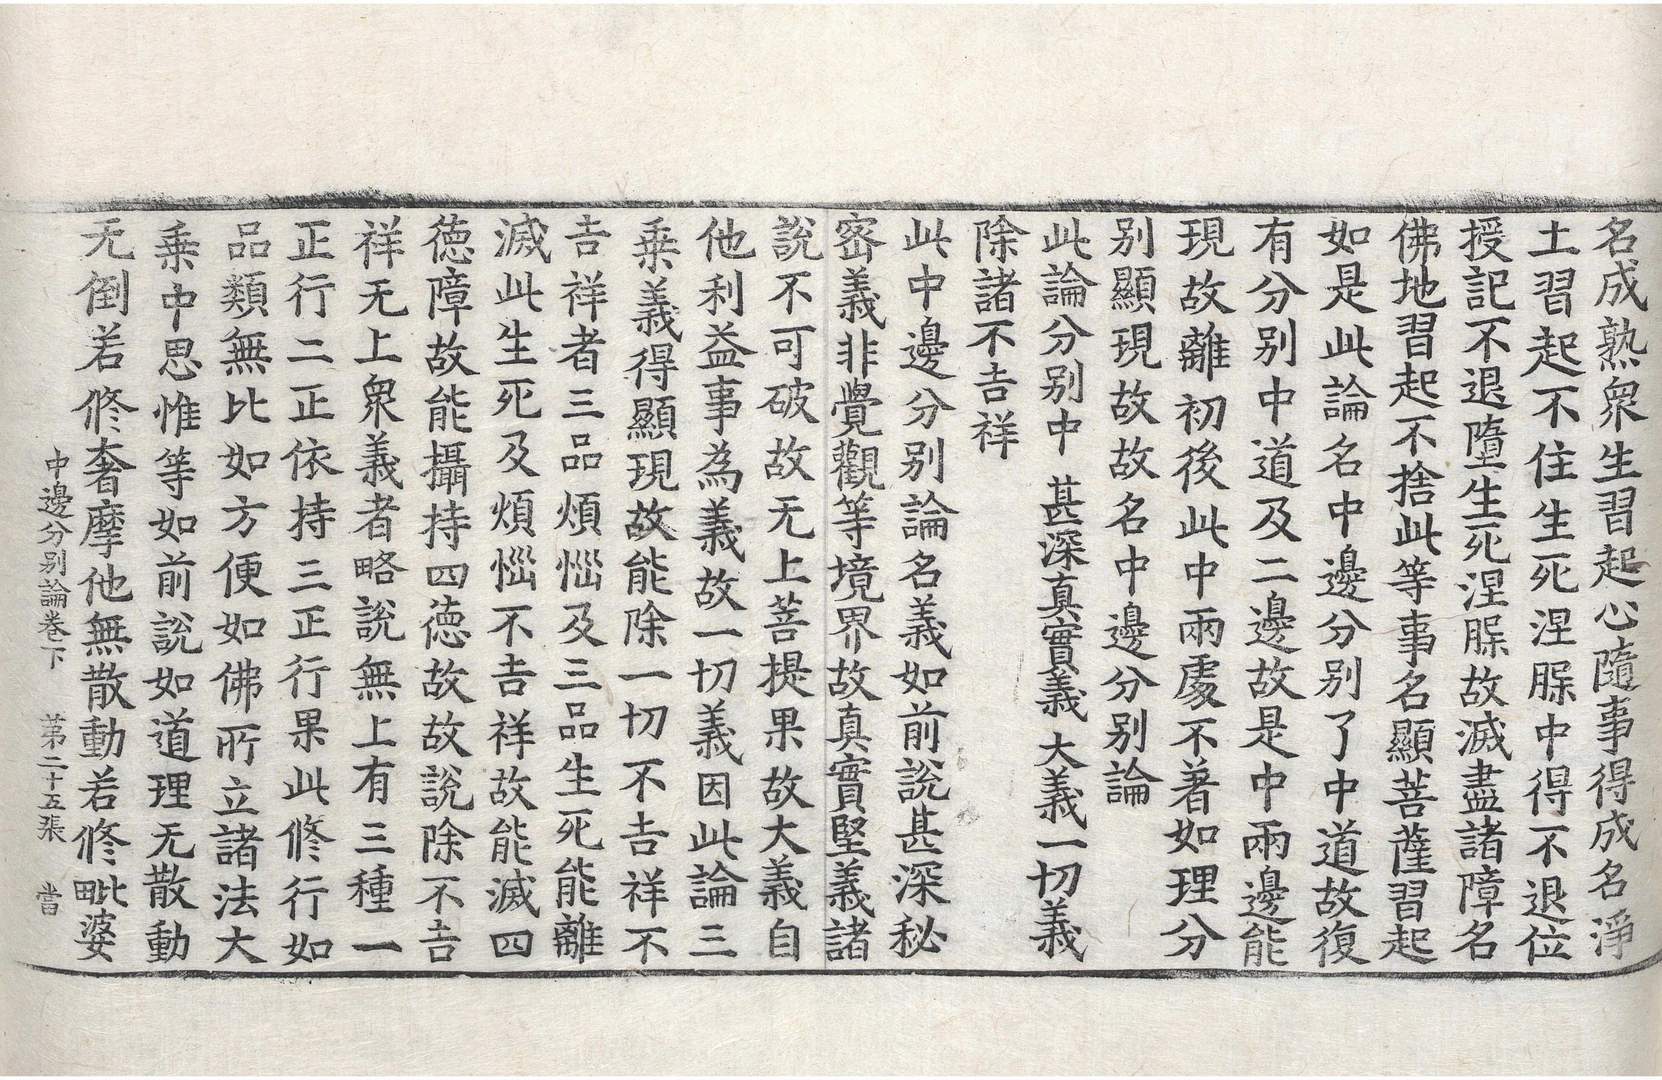 名成熟衆生習起心隨事得成名淨
土習起不住生死涅脲中得不退位
授記不退墮生死涅脲故滅盡諸障名
佛地習起不捨此等事名顯菩薩習起
如是此論名中邊分別了中道故復
有分別中道及二邊故是中兩邊能
現故離初後此中兩處不著如理分
別顯現故故名中邊分別論
此論分別中 甚深真實義 大義一切義
除諸不吉祥
此中邊分別論名義如前說甚深秘
密義非覺觀等境界故真實堅義諸
說不可破故无上菩提果故大義自
他利益事為義故一切義因此論三
乗義得顯現故能除一切不吉祥不
吉祥者三品煩惱及三品生死能離
滅此生死及煩惱不吉祥故能滅四
德障故能攝持四德故故說除不吉
祥无上衆義者略說無上有三種一
正行二正依持三正行果此修行如
品類無比如方便如佛所立諸法大
乗中思惟等如前說如道理无散動
无倒若修奢摩他無散動若修毗婆
中邊分別論卷下 第二十五張 當